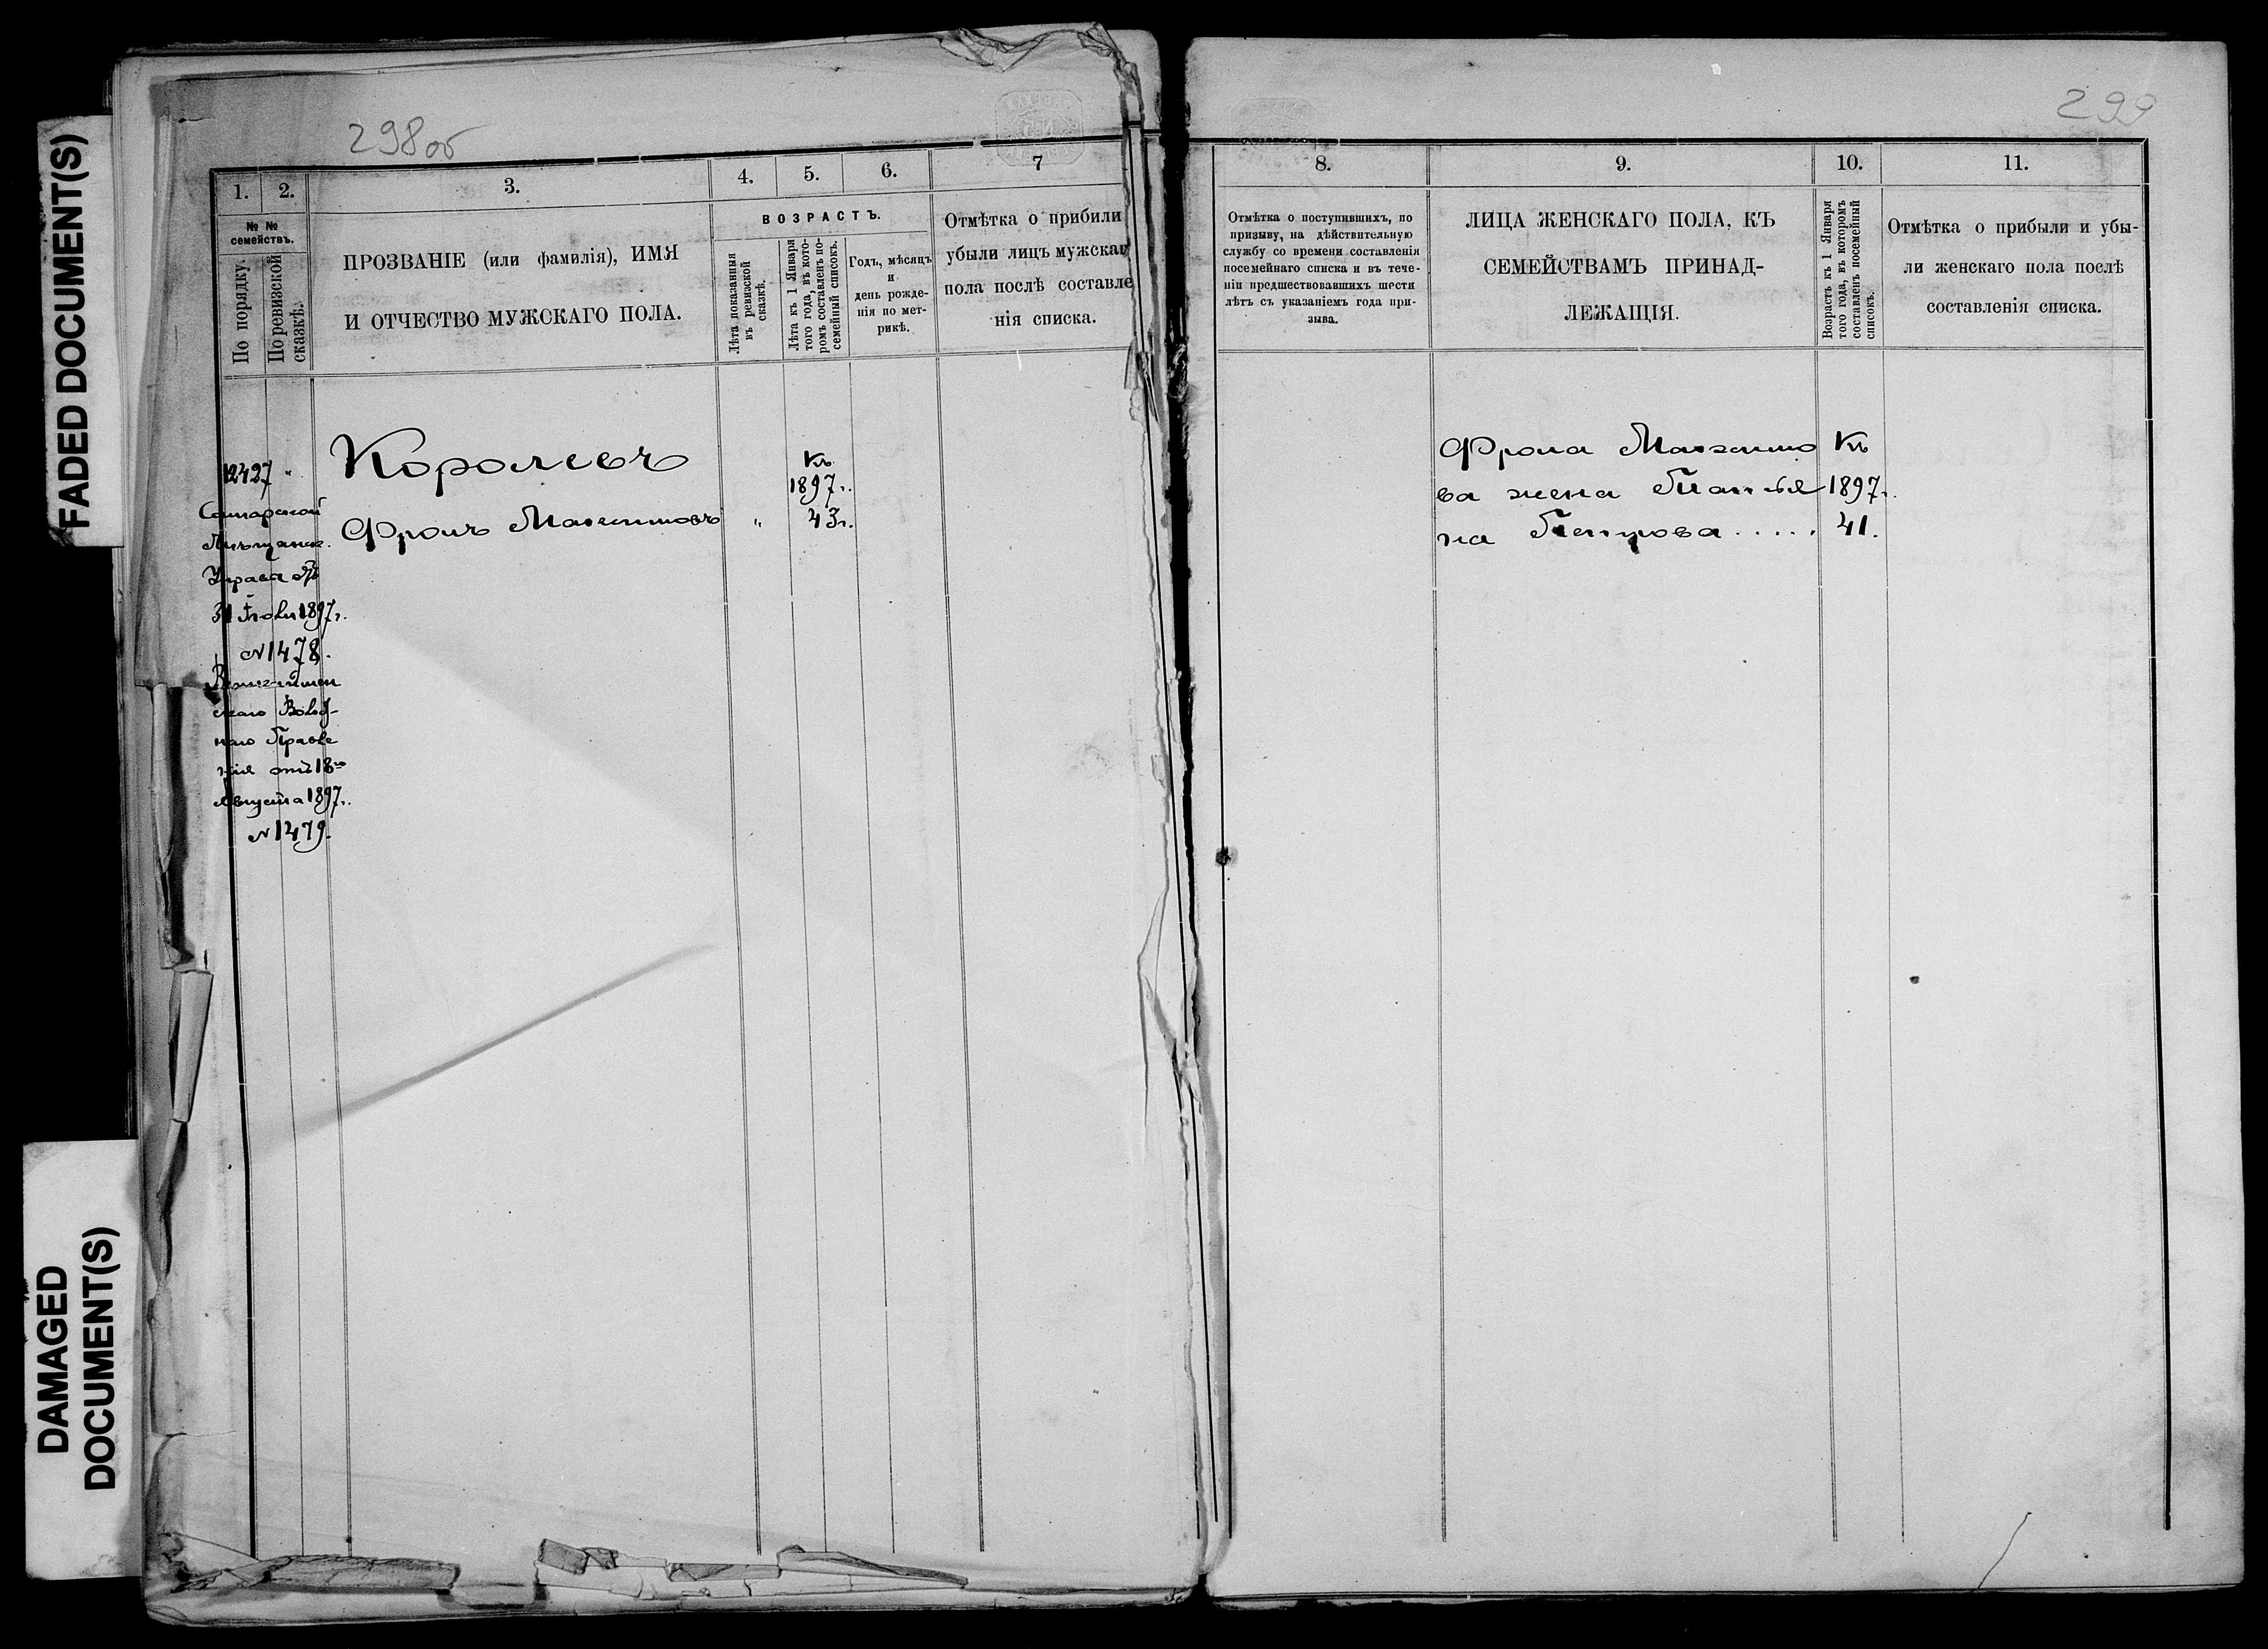 FADED DOCUMENT(S)
DAMAGED
DOCUMENT(S)
298об
1.
2.
3.
4.
5.
6.
7
№ №
семействъ.
По порядку.
По ревизской
сказкѣ.
ПРОЗВАНІЕ (или фамилія), ИМЯ
И ОТЧЕСТВО МУЖСКАГО ПОЛА.
ВОЗРАСТЪ.
Лѣта показанныя
въ ревизской
сказкѣ.
Лѣта къ 1 Января
того года, въ кото-
ромъ составленъ по-
семейный списокъ.
Годъ, мѣсяцъ
и
день рожде-
нія по мет-
рикѣ.
Отмѣтка о прибили
убыли лицъ мужскаг
пола послѣ составле
нія списка.
12427 "
Самарской
Мѣщанск.
Управа отъ
31 Іюля 1897г.
№ 1478.
скаго Волост-
наго Правле
нія отъ 18го
Августа 1897г.
№ 1479.
Королевъ
Фролъ Максимовъ "
Къ
1897г.
43г.
299
8.
9.
10.
11.
Отмѣтка о поступившихъ, по
призыву, на дѣйствительную
службу со времени составленія
посемейнаго списка и въ тече-
ніи предшествовавшихъ шести
лѣтъ съ указаніемъ года при-
зыва.
ЛИЦА ЖЕНСКАГО ПОЛА, КЪ
СЕМЕЙСТВАМЪ ПРИНАД-
ЛЕЖАЩІЯ.
Возрастъ къ 1 Января
того года, въ которомъ
составленъ посемейный
списокъ.
Отмѣтка о прибыли и убы-
ли женскаго пола послѣ
составленія списка.
Фрола Максимо Къ
ва жена Татья 1897г.
на Петрова ..... 41.